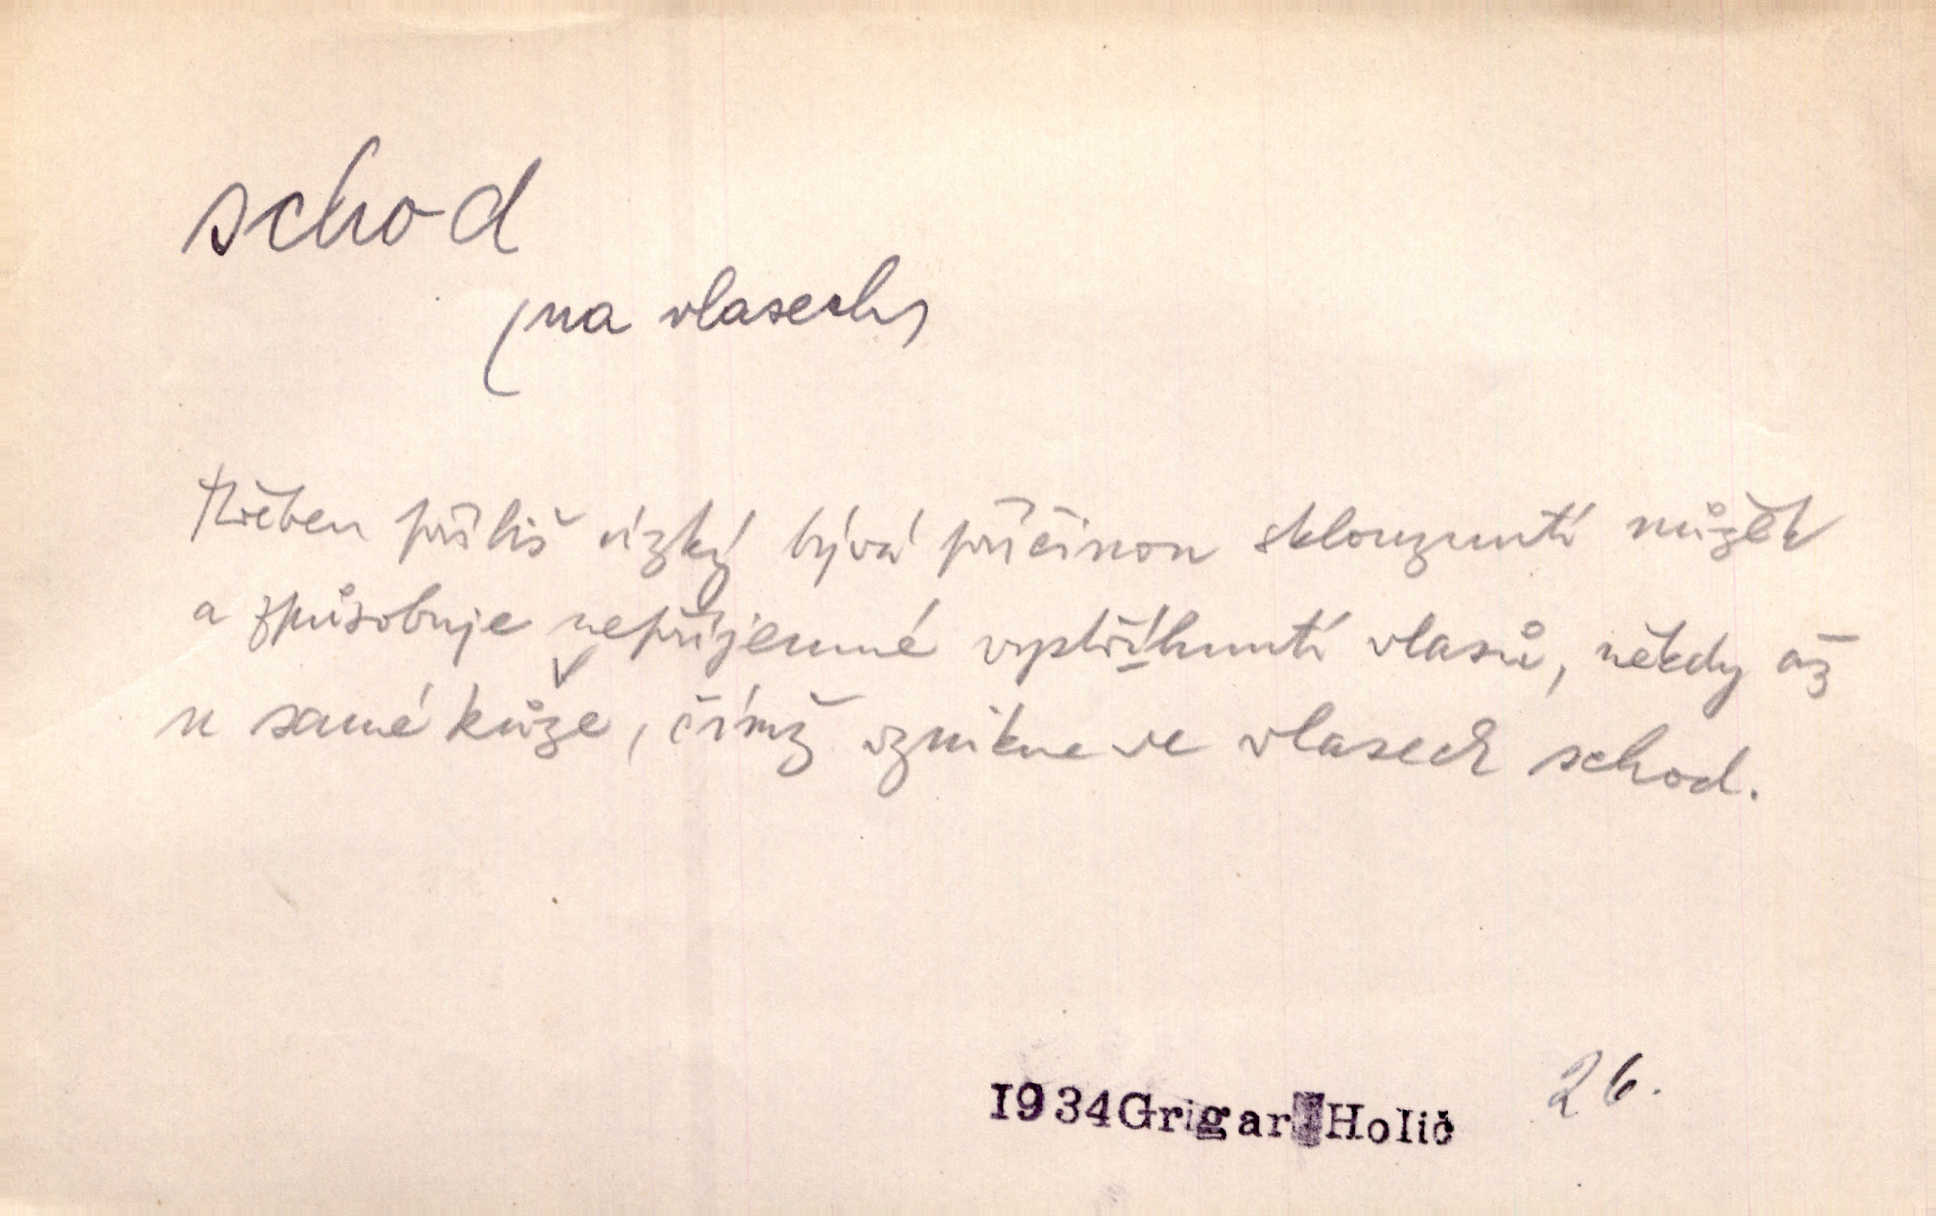 schod
(na vlasech)
Hřeben příliš úzký bývá příčinou sklouznutí nůžek
a způsobuje nepříjemné vystřihnutí vlasů, někdy až
u samé kůže, čímž vznikne ve vlasech schod.
1934 Grigar Holič 26.